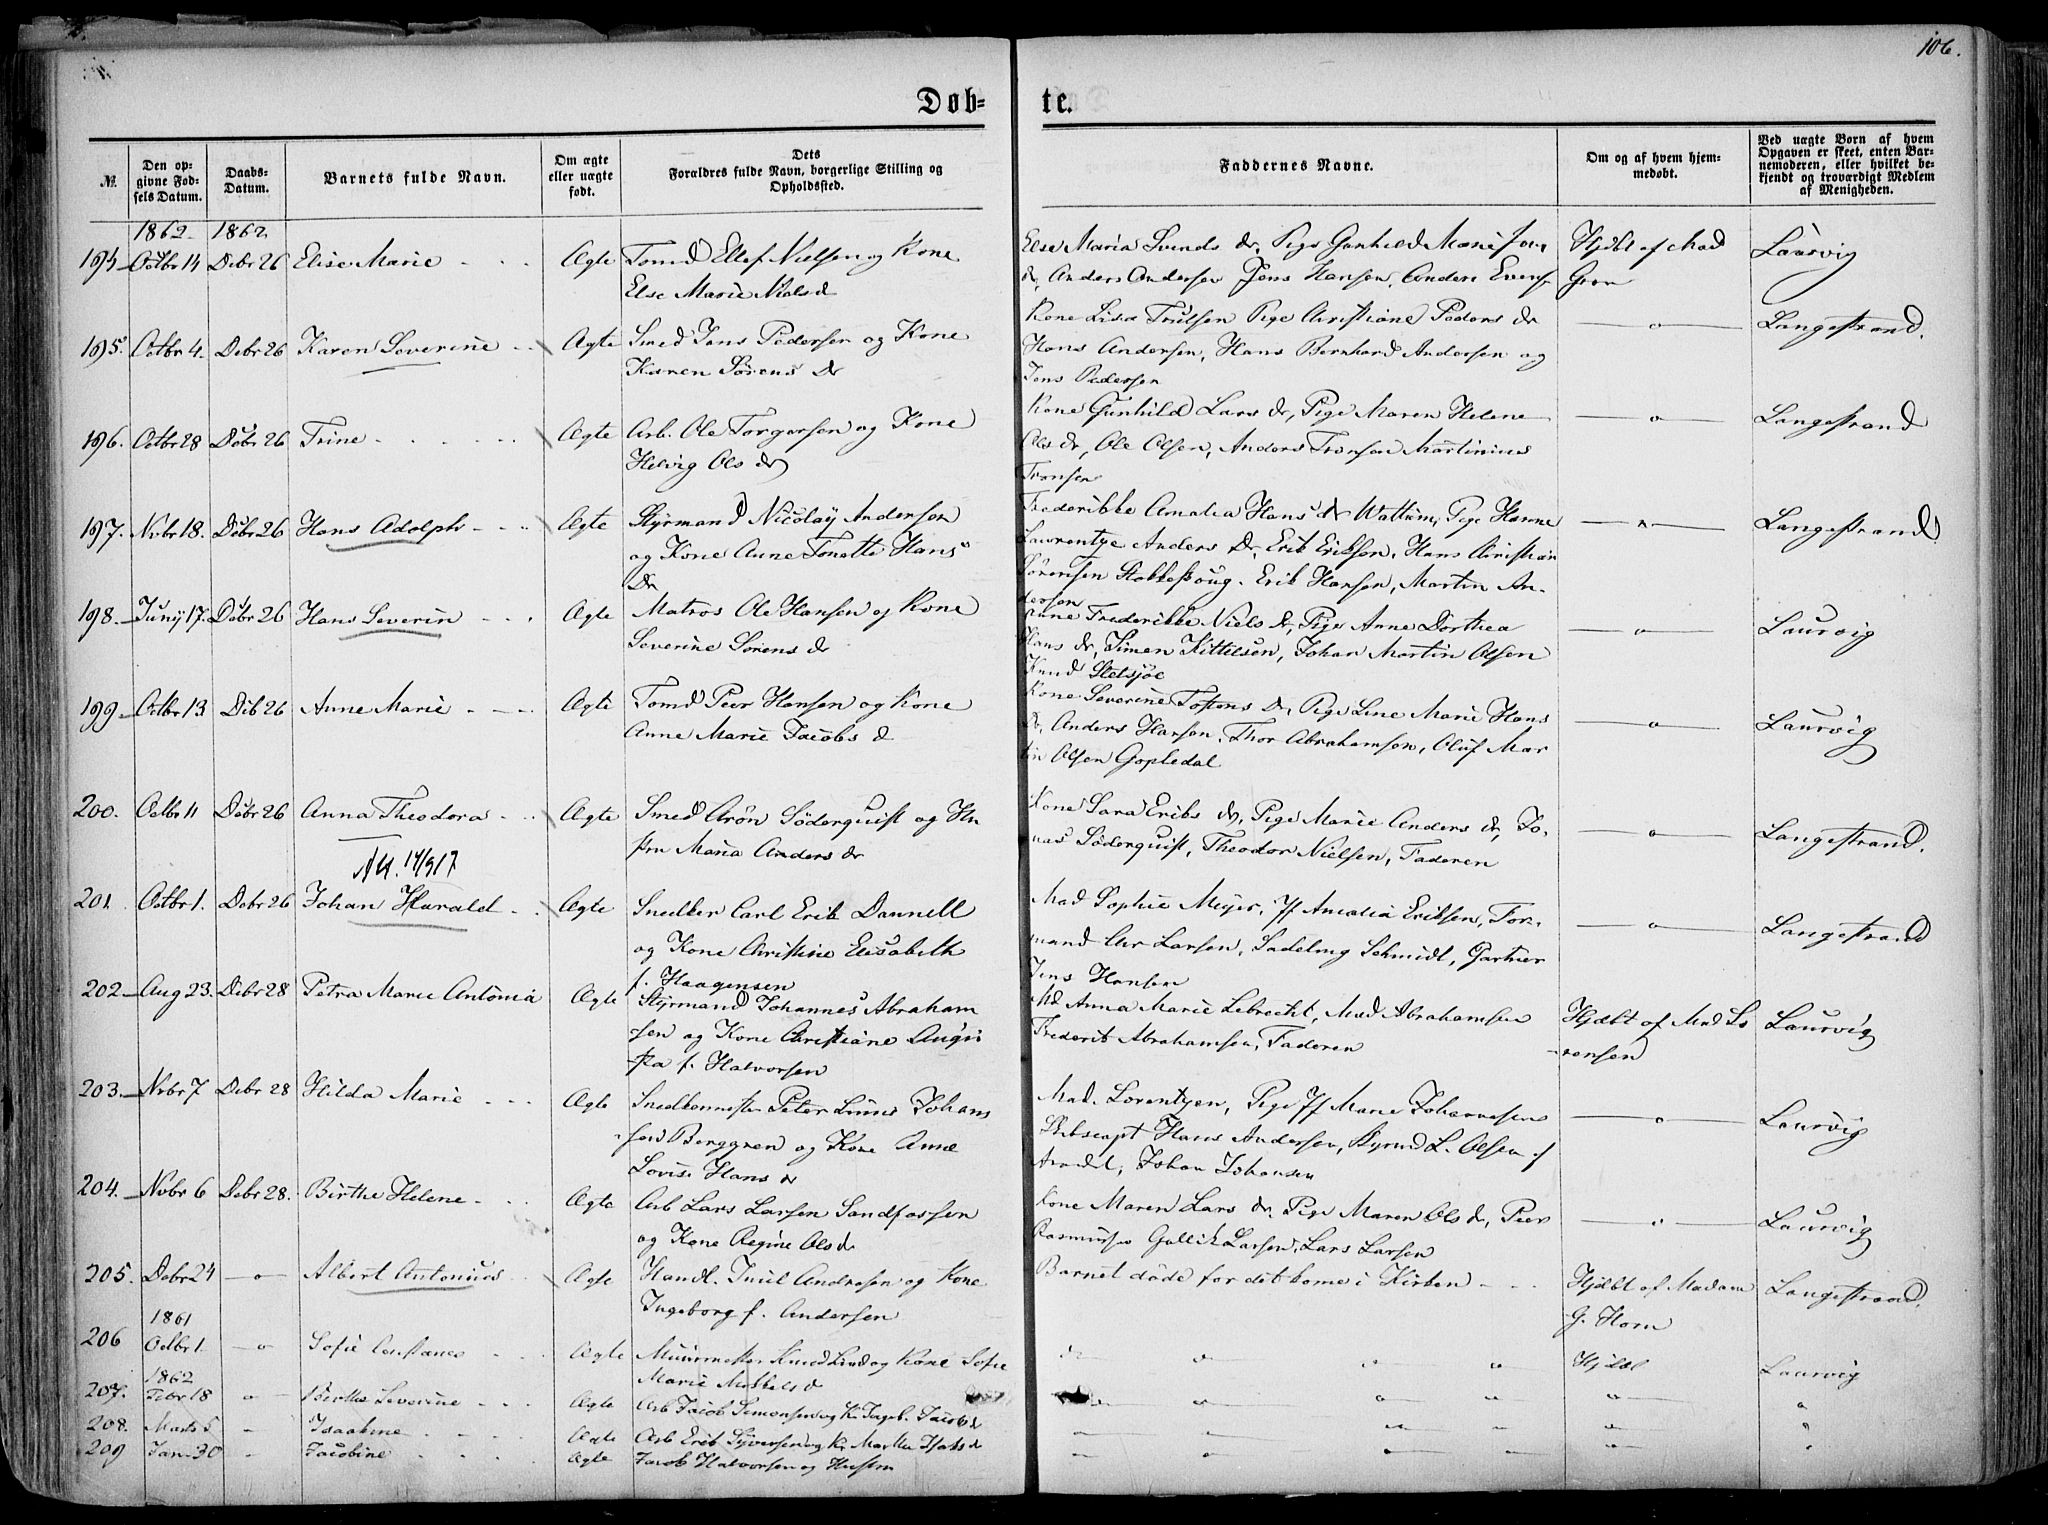 106.
Døb-
te.
№.
Den op-
givne Fød-
sels Datum.
Daabs-
Datum.
Barnets fulde Navn.
Om ægte
eller uægte
født.
Dets
Forældres fulde Navn, borgerlige Stilling og
Opholdssted.
Faddernes Navne.
Om og af hvem hjem-
medøbt.
Ved uægte Børn af hvem
Opgaven er skeet, enten Bar-
nemoderen, eller hvilket be-
kjendt og troværdigt Medlem
af Menigheden.
1862. 1862.
194 Octbr 14 Debr 26 Elise Marie Ægte Tømd Ellef Nielsen og Kone
Else Marie Niels d
Else Maria Svends dr, Pige Gunhild Marie
dr, Anders Andersen Jens Hansen, Anders Evens
Hjdbt af Mad
Laurvig
195. Octbr 4. Debr 26 Karen Severine Ægte Smed Jens Pedersen og Kone
Karen Sörens Dr
Kone Lisa Trulsen Pige Christiane Peders dr
Hans Andersen, Hans Bernhard Andersen og
Jens Pedersen
o
Langestrand.
196. Octbr 28 Debr 26 Trine Ægte Arb. Ole Torgersen og Kone
Helvig Ols dr
Kone Gunhild Lars dr, Pige Maren Helene
Ols dr, Ole Olsen, Anders Tronsen Martinius
Tronsen
o
Langestrand
197. Nvbr 18. Debr 26 Hans Adolph Ægte Styrmand Nicolay Andersen
og Kone Anne Tonette Hans
Dr
Frederikke Amalia Hans dr Wattum, Pige Hanne
Laurentze Anders Dr, Erik Eriksen, Hans Christian
Sörensen, Erik Hansen, Martin An-
dersen
Langestrand
198. Juny 17. Debr 26 Hans Severin Ægte Matros Ole Hansen og Kone
Severine Sorens dr
Anne Frederikke Niels dr, Pige Anne Dorthea
Hans dr, Simen Kittelsen, Johan Martin Olsen
Knud Sletsjöe
o
Laurvig
199 Octbr 13 Deb 26 Anne Marie Ægte Tomd Peer Hansen og Kone
Anne Marie Jacobs d
Kone Severine Tostens Dr, Pige Line Marie Hans
Dr, Anders Hansen, Thor Abrahamsen, Oluf Mar
tin Olsen Gopledal
o
Laurvig
200. Octbr 11 Debr 26 Anna Theodora Ægte Smed Arön Söderquist og Hu
stru Maria Anders dr
Kone Sara Eriks dr, Pige Marie Anders dr, Jo-
nas Söderquist, Theodor Nielsen, Faderen
o
Langestrand.
Att. 14/917
201. Octbr 1. Debr 26 Johan Harald Ægte Snedker Carl Erik Dannell
og Kone Christine Elisabeth
f. Haagensen
Mad Sophie Meyer, Jf Amalia Eriksen, For-
mand Chr Larsen, Sadelmg Schmidt, Gartner
Jens Hansen
o
Langestrand
202 Aug 23. Debr 28 Petra Marie Antonia Ægte Styrmand Johannes Abraham
sen og Kone Christiane Augu
sta f. Halvorsen
Md Anna Marie Lebrecht, Mad Abrahamsen
Frederik Abrahamsen, Faderen
Hjdbt af Mad So
rensen
Laurvig
203. Nvbr 7 Debr 28 Hilda Marie Ægte Snedkermester Peter Linus Johans
sen Berggren og Kone Anne
Lovise Hans dr
Mad. Lorentzen, Pige Jf Marie Johannesen
Skibscapt Hans Andersen, Styrmd L. Olsen af
Arendal, Johan Johansen
o
Laurvig
204. Nvbr 6 Debr 28. Birthe Helene Ægte Arb Lars Larsen Sandfossen
og Kone Regine Ols dr
Kone Maren Lars dr, Pige Maren Ols dr, Peer
Rasmusen Gullik Larsen, Lars Larsen
Laurvig
205. Debr 24 o Albert Antonius Ægte Handl. Juul Andresen og Kone
Ingeborg f. Andersen
Barnet döde för det kome i Kirken
Hjdbt af Madam
G. Horn
Langestrand.
1861
206 Octbr 1. o Sofie Constance Ægte Muurmester Knud Lind og Kone Sofie
Marie
Hjdbt
Laurvig
1862
207. Febr 18 o Birthe Severine Ægte Arb Jacob Simonsen og K. Ingeb. Jacobs d
208. Marts 5 Isaakine Ægte Arb Erik Syversen og K. Marthe Isaks d
209 Jan. 30 Jacobine Ægte Jacob Halvorsen og Hustru